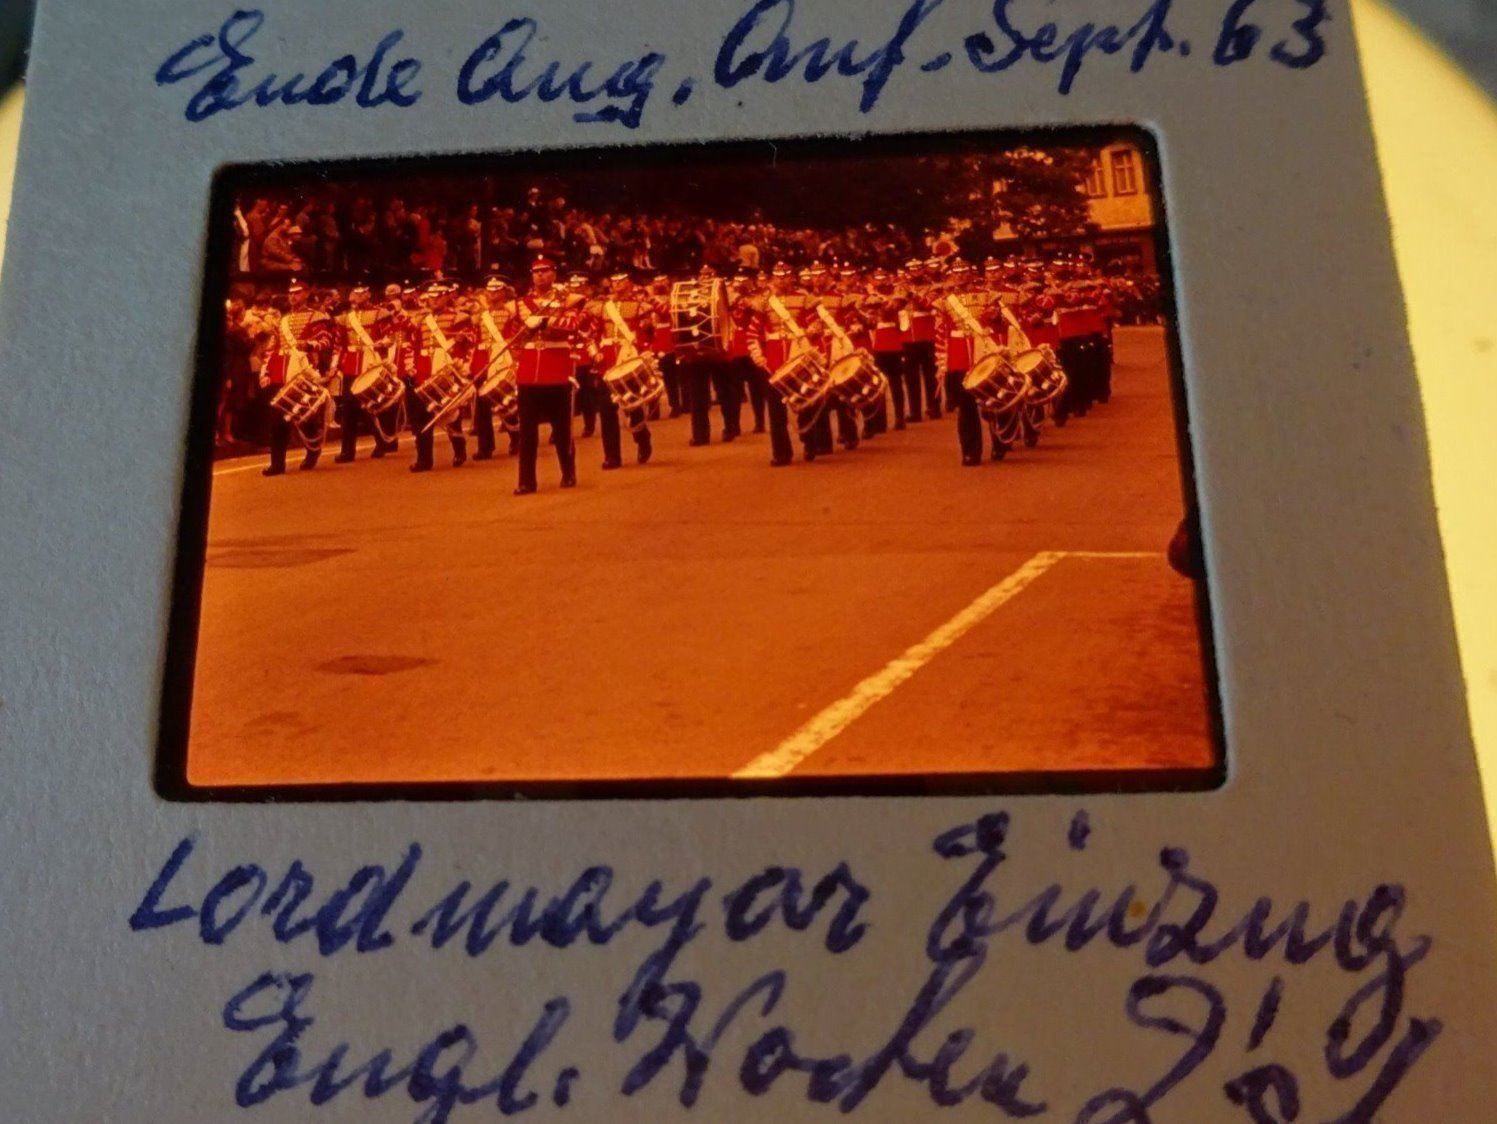 Ende Aug. Anf. Sept. 63
Lordmayar Einzug
Engl. Wochen